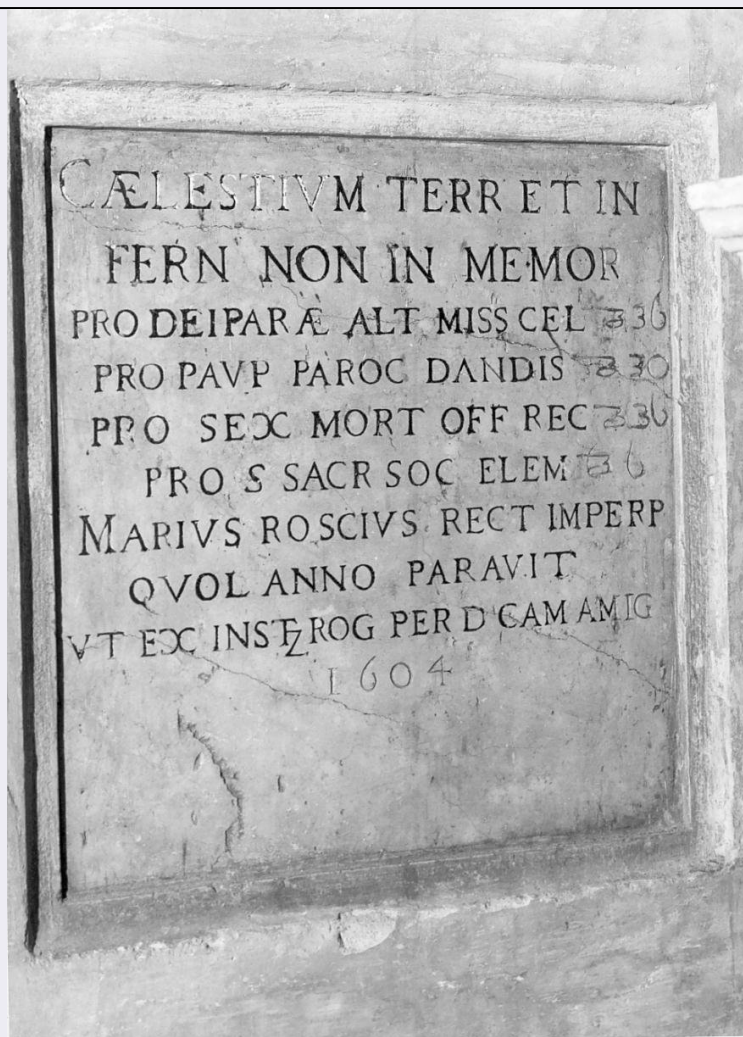 CÆLESTIVM TERR ET IN
FERN NON IN MEMOR
PRO DEIPARÆ ALT MISS CEL 336
PRO PAVP PAROC DANDIS 330
PRO SEX MORT OFF REC 336
PRO S SACR SOC ELEM 6
MARIVS ROSCIVS RECT IMPERP
QVOL ANNO PARAVIT
VT EX INST ROG PER D CAM AMIG
1604